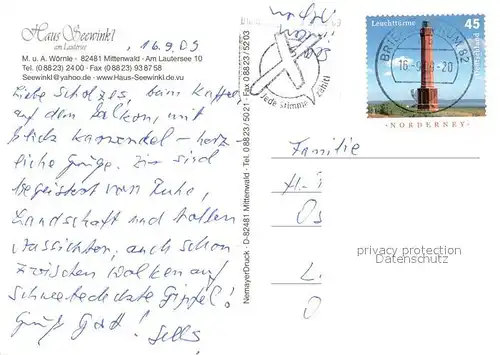 Haus Seewinkl
am Lautersee
16.9.09
M. u. A. Wörnle · 82481 Mittenwald · Am Lautersee 10
Tel. (0 88 23) 24 00 · Fax (0 88 23) 93 87 58
Seewinkl@yahoo.de · www.Haus-Seewinkl.de.vu
Liebe Scholzes, beim Kaffee
auf dem Balkon, mit
Blick Karwendel – herz-
liche Grüße. Wir sind
begeistert von Ruhe,
Landschaft und tollen
Aussichten, auch schon
zwischen Wolken auf
schneebedeckte Gipfel!
Grüß Gott!
NemayerDruck · D-82481 Mittenwald · Tel. 0 88 23/50 21 · Fax 0 88 23/52 03
Jede Stimme zählt!
Leuchttürme
45
Deutschland
NORDERNEY
BRIEFZENTRUM 82
16.9.09-20
Familie
privacy protection
Datenschutz